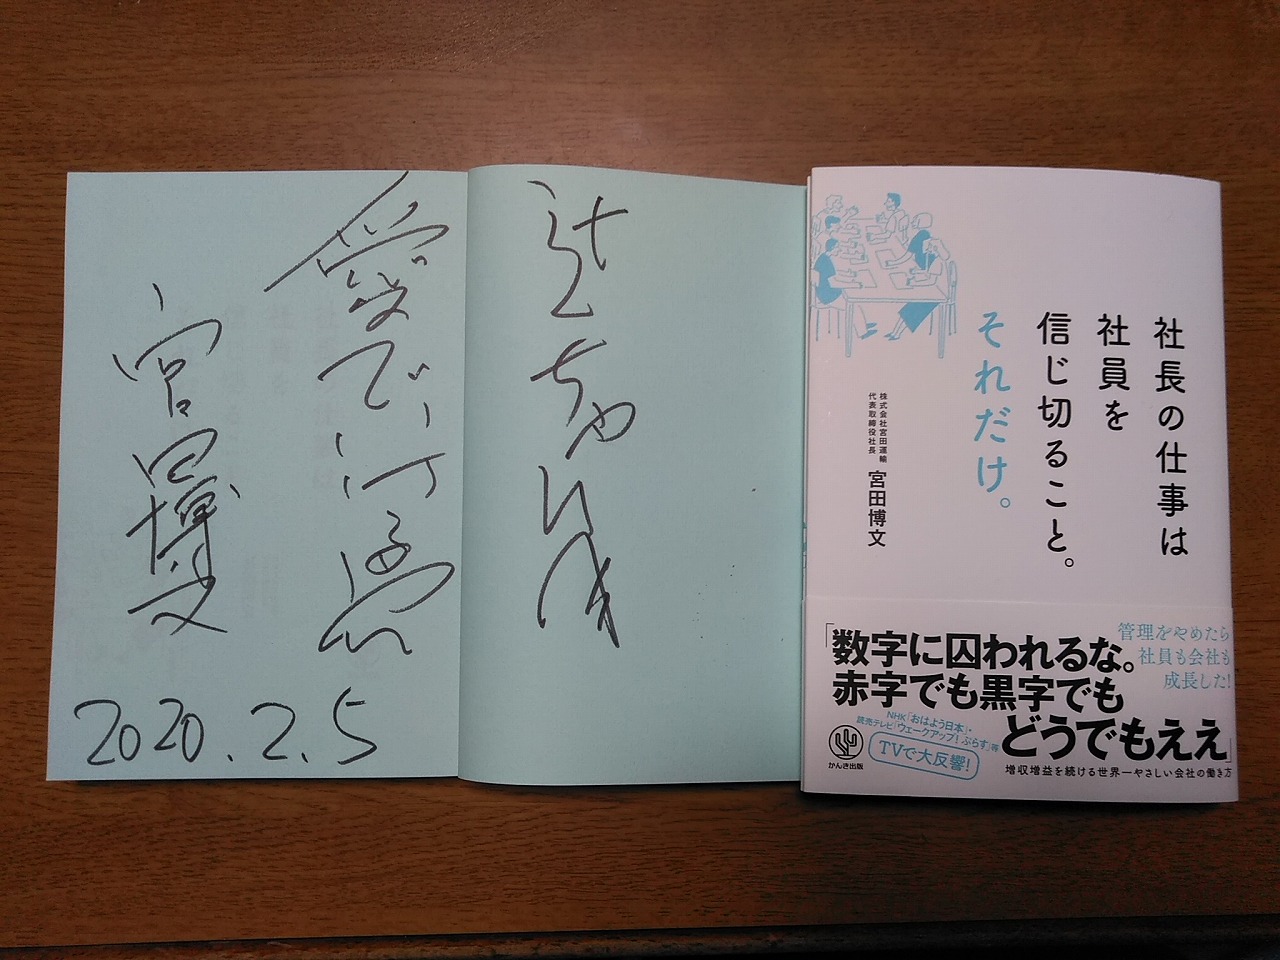 愛で
宮田博文
2020.2.5
社長の仕事は
社員を
信じ切ること。
それだけ。
株式会社宮田運輸
代表取締役社長
宮田博文
管理をやめたら
社員も会社も
成長した!
「数字に囚われるな。
赤字でも黒字でも
どうでもええ」
NHK「おはよう日本」・
読売テレビ「ウェークアップ!ぷらす」等
TVで大反響!
かんき出版
増収増益を続ける世界一やさしい会社の働き方